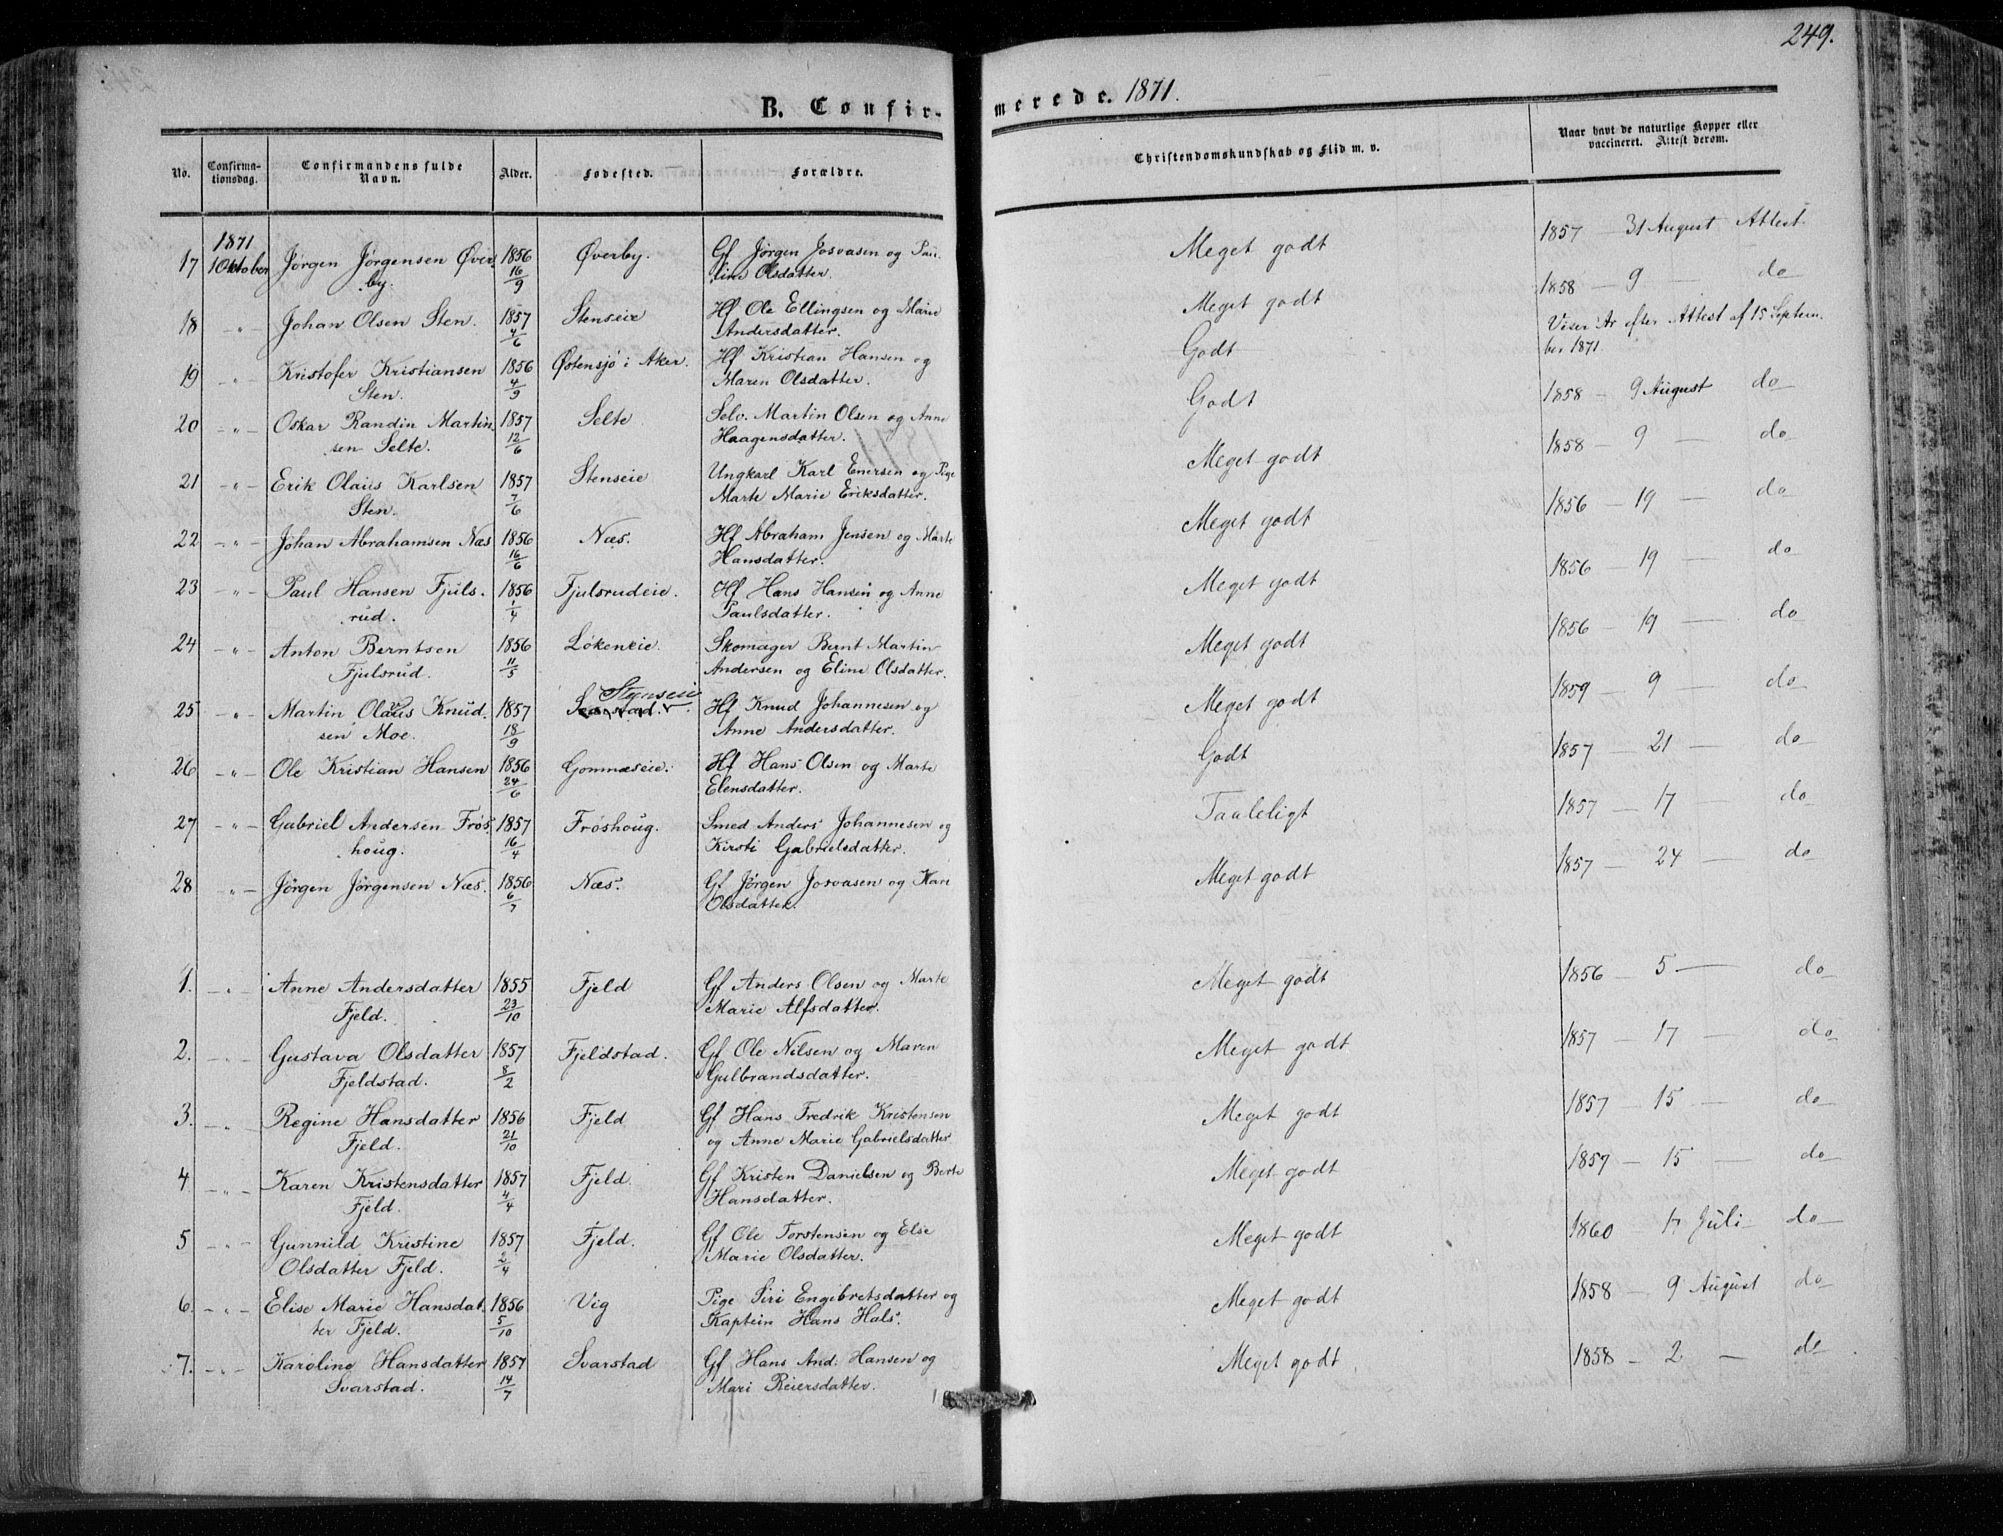 249.
B. Confir-
merede. 1871.
No.
Confirma-
tionsdag.
Confirmandens fulde
Navn.
Alder.
Fødested.
Forældre.
Christendomskundskab og Flid m. v.
Naar havt de naturlige Kopper eller
vaccineret. Attest derom.
1871
17 1 Oktober Jørgen Jørgensen Øver 1856 Øverby. Gf Jørgen Josvasen og Pau- Meget godt 1857 — 31 August Attest.
by. 16/9 line Olsdatter.
18 -"- Johan Olsen Sten. 1857 Stenseie Hf Ole Ellingsen og Marie Meget godt 1858 — 9 — do
4/6 Andersdatter.
19 -"- Kristofer Kristiansen 1856 Østensjø i Aker. Hf Kristian Hansen og Godt Viser Ar efter Attest af 15 Septem-
Sten. 4/9 Maren Olsdatter. ber 1871.
20 -"- Oskar Randin Martin 1857 Selte Selv. Martin Olsen og Anne Godt 1858 — 9 August do
sen Selte. 12/6 Haagensdatter.
21 -"- Erik Olaus Karlsen 1857 Stenseie Ungkarl Karl Enersen og Pige Meget godt 1858 — 9 — do
Sten. 7/6 Marte Marie Eriksdatter.
22 -"- Johan Abrahamsen Næs 1856 Næs. Hf Abraham Jensen og Marte Meget godt 1856 — 19 — do
16/6 Hansdatter.
23 -"- Paul Hansen Fjuls- 1856 Fjulsrudeie. Hf Hans Hansen og Anne Meget godt 1856 — 19 — do
rud. 1/4 Paulsdatter.
24 -"- Anton Berntsen 1856 Løkeneie. Skomager Bernt Martin Meget godt 1856 — 19 — do
Fjulsrud. 11/5 Andersen og Eline Olsdatter.
Stenseie
25 -"- Martin Olaus Knud- 1857 Svarstad. Hf Knud Johannesen og Meget godt 1859 — 9 — do
sen Moe. 18/9 Anne Andersdatter.
26 -"- Ole Kristian Hansen 1856 Gomnæseie. Hf Hans Olsen og Marte Godt 1857 — 21 — do
24/6 Elensdatter.
27 -"- Gabriel Andersen Frøs 1857 Frøshoug. Smed Anders Johannesen og Taaleligt 1857 — 17 — do
houg. 16/4 Kirsti Gabrielsdatter.
28 -"- Jørgen Jørgensen Næs. 1856 Næs. Gf Jørgen Josvasen og Kari Meget godt 1857 — 24 — do
6/7 Olsdatter.
1. -"- Anne Andersdatter 1855 Fjeld Gf Anders Olsen og Marte Meget godt 1856 — 5 — do
Fjeld. 23/10 Marie Alfsdatter.
2. -"- Gustava Olsdatter 1857 Fjeldstad. Gf Ole Nilsen og Maren Meget godt 1857 — 17 — do
Fjeldstad. 8/2 Gulbrandsdatter.
3. -"- Regine Hansdatter 1856 Fjeld Gf Hans Fredrik Kristensen Meget godt 1857 — 15 — do
Fjeld. 21/10 og Anne Marie Gabrielsdatter
4 -"- Karen Kristensdatter 1857 Fjeld Gf Kristen Danielsen og Berte Meget godt 1857 — 15 — do
Fjeld. 4/4 Hansdatter.
5 -"- Gunnild Kristine 1857 Fjeld. Gf Ole Torstensen og Else Meget godt 1860 — 17 Juli — do
Olsdatter Fjeld. 2/4 Marie Olsdatter.
6. -"- Elise Marie Hansdat- 1856 Vig Pige Siri Engebretsdatter og Meget godt 1858 — 9 August do
ter Fjeld. 5/10 Kaptein Hans Hals.
7. -"- Karoline Hansdatter 1857 Svarstad Gf Hans And. Hansen og Meget godt 1858 — 2 — do
Svarstad. 14/7 Mari Reiersdatter.